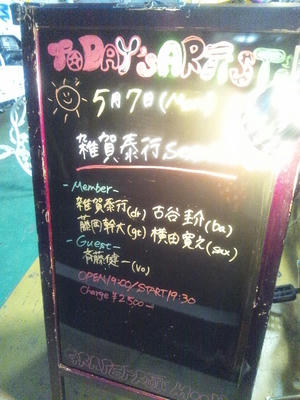 TODAY'S ARTIST
5月7日(Mon)
雑賀泰行
-Member-
雑賀泰行(dr) 古谷圭介(ba)
藤岡幹大(gt) 横田寛之(sax)
-Guest-
斉藤健一(vo)
OPEN 19:00/START 19:30
Charge ¥2,500-